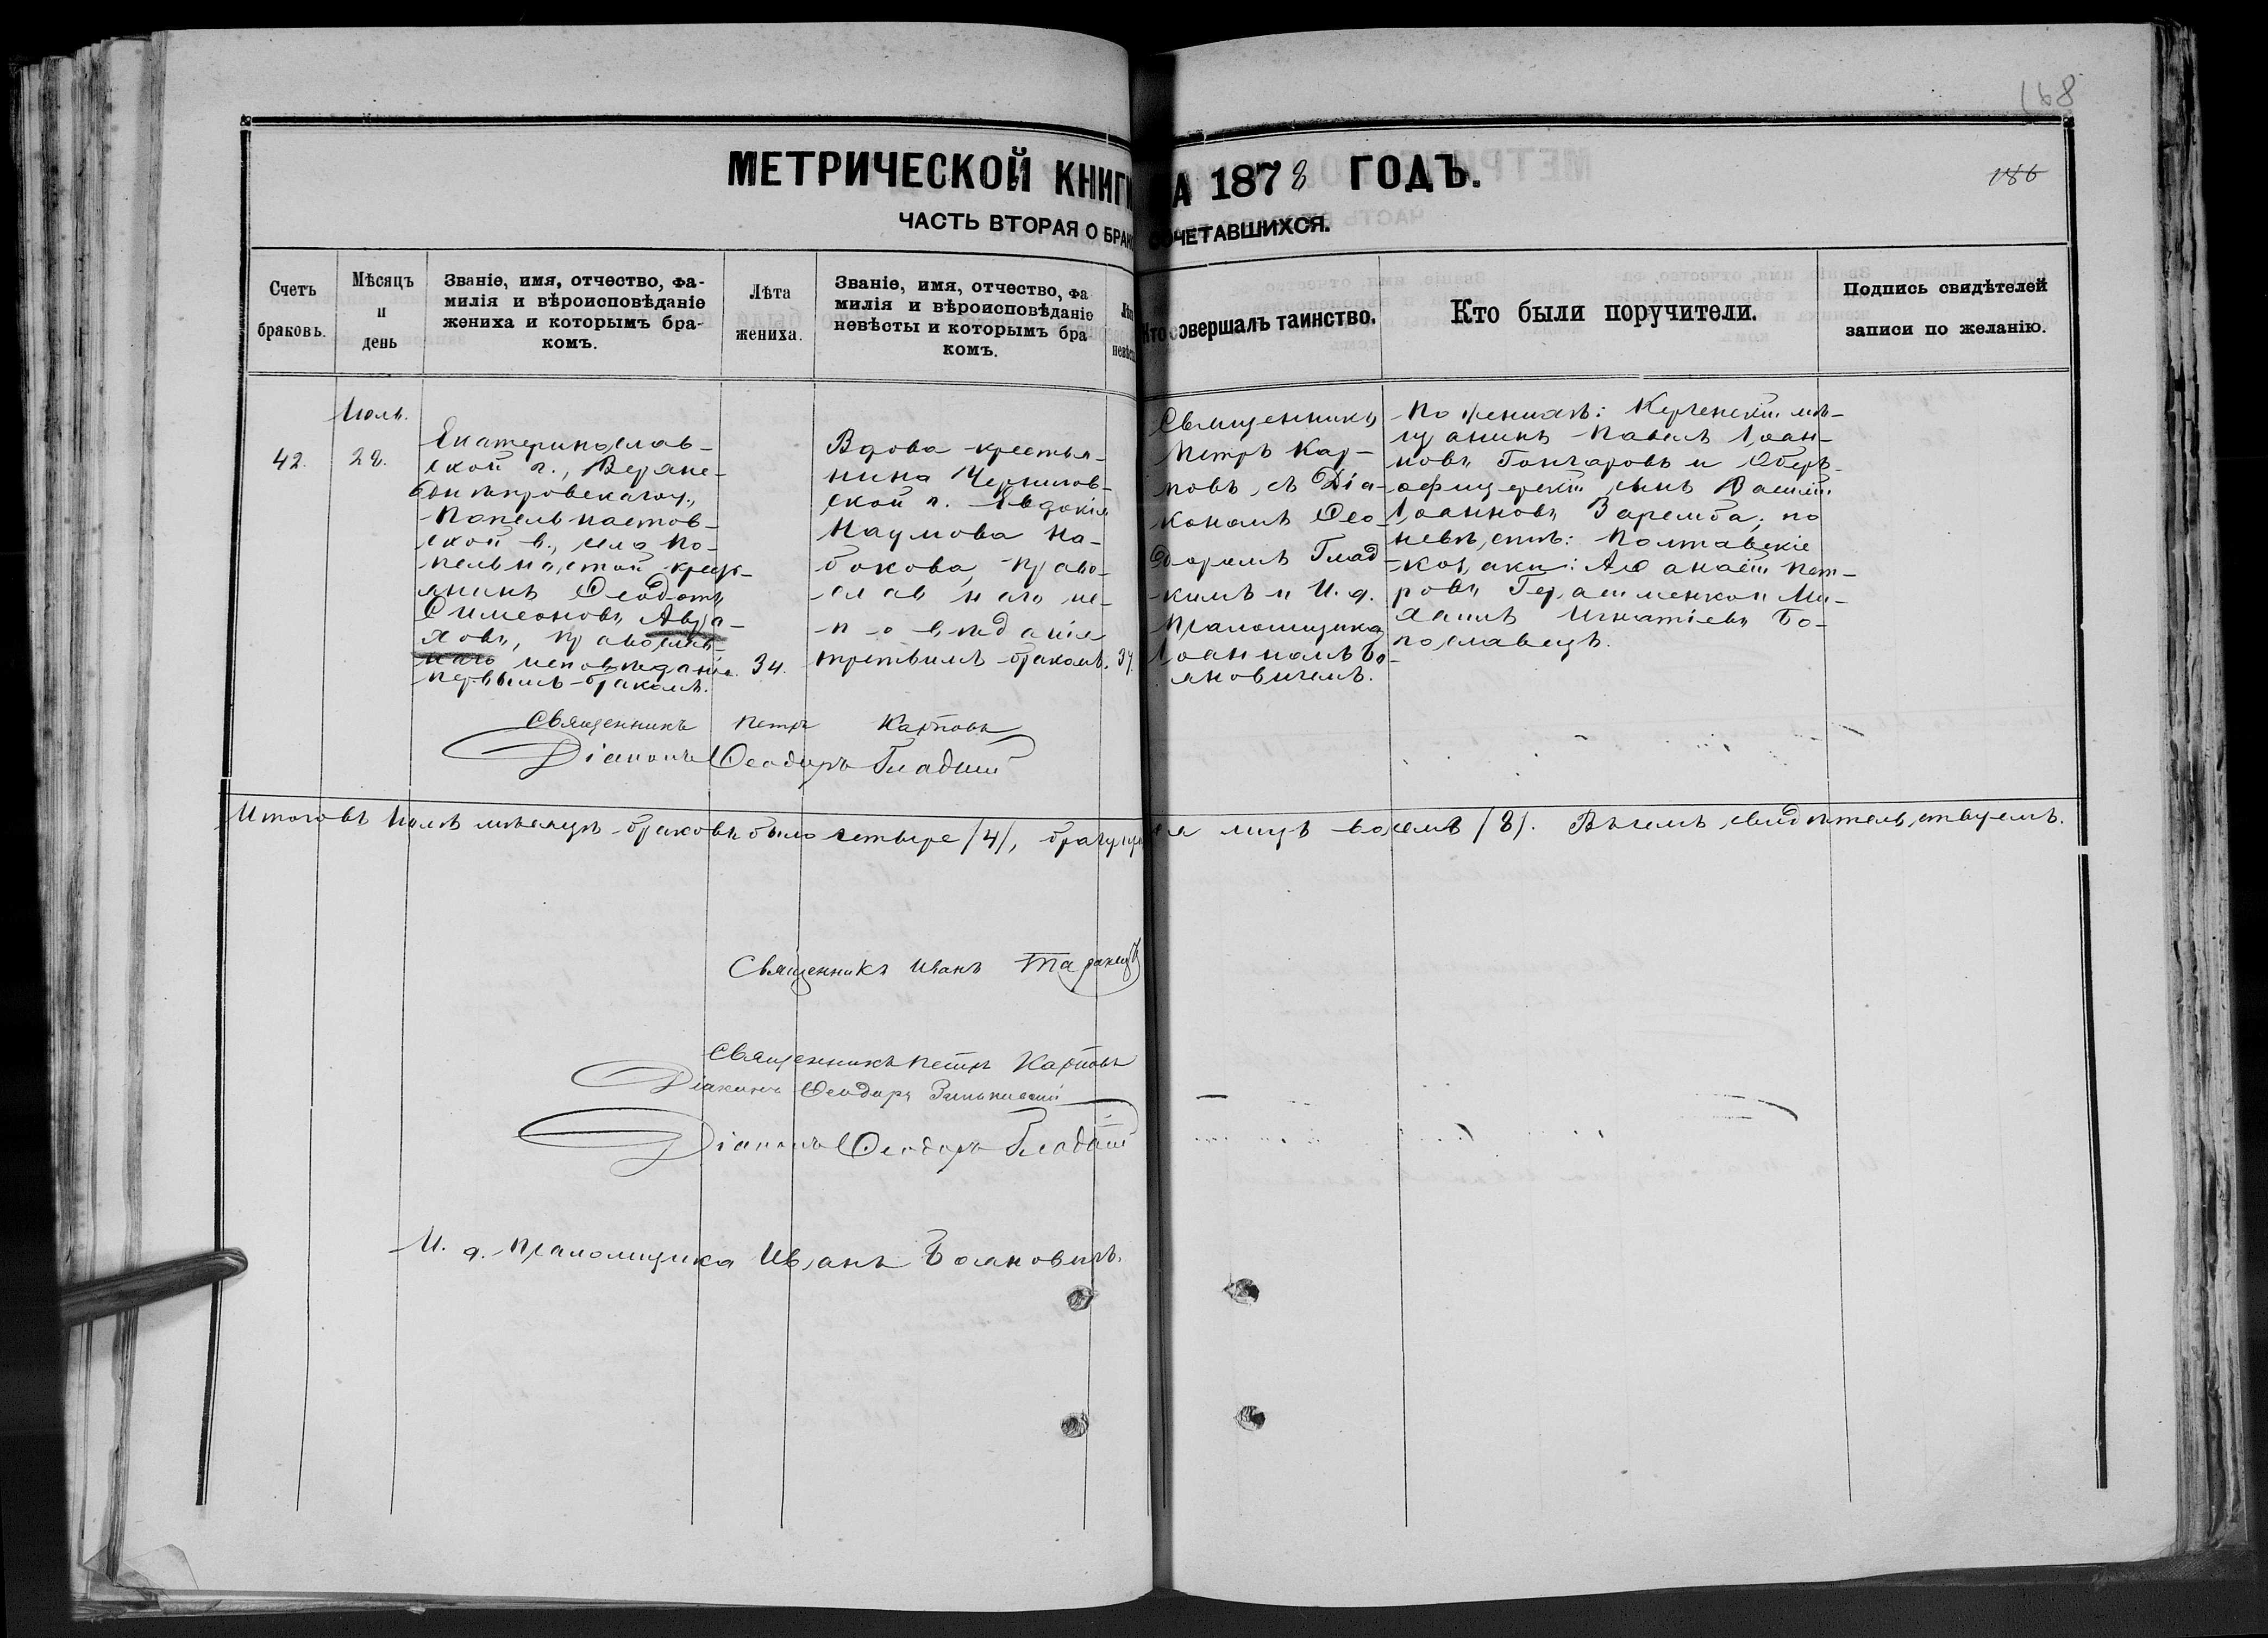 168
МЕТРИЧЕСКОЙ КНИГИ А 1878 ГОДЪ.
186
ЧАСТЬ ВТОРАЯ О БРАКОСОЧЕТАВШИХСЯ.
Счетъ браковъ.
Мѣсяцъ и день
Званіе, имя, отчество, фа-
милія и вѣроисповѣданіе
жениха и которымъ бра-
комъ.
Лѣта жениха.
Званіе, имя, отчество, фа
милія и вѣроисповѣданіе
невѣсты и которымъ бра
комъ.
Кто совершалъ таинство.
Кто были поручители.
Подпись свидѣтелей
записи по желанію.
Июль.
42.
28.
Екатеринослав-
ской г., Верхне-
Днѣпровскаго у.,
Попельнастов-
ской в., села По-
пельнастой кресть-
янинъ Ѳеодотъ
Симеоновъ Авра-
ховъ, православ-
наго исповѣданія
первымъ бракомъ.
34.
Вдова крестья-
нина Чернигов-
ской г. Евдокія
Наумова На-
бокова, право-
славнаго ис-
повѣданія
третьимъ бракомъ.
37.
Священникъ
Петръ Кар-
повъ, съ Діа-
кономъ Ѳео-
доромъ Глад-
кимъ и И. д.
Псаломщика
Іоанномъ Бо-
яновичемъ.
По женихѣ: Керченскій мѣ-
щанинъ Павелъ Іоан-
новъ Гончаровъ и Оберъ-
офицерскій сынъ Василій
Іоанновъ Заремба; по
невѣстѣ: Полтавскіе
козаки: Аѳанасій Пет-
ровъ Герасименко и Ми-
хаилъ Игнатіевъ Бо-
пославецъ.
Священникъ Петръ Карповъ
Діаконъ Ѳеодоръ Гладкій
Итого въ Июлѣ мѣсяцѣ браковъ было четыре /4/, брачущихся лицъ восемь /8/. Въ чемъ свидѣтельствуемъ.
Священникъ Иванъ Таранецъ
Священникъ Петръ Карповъ
Діаконъ Ѳеодоръ
Діаконъ Ѳеодоръ Гладкій
И. д. Псаломщика Иванъ Бояновичъ.